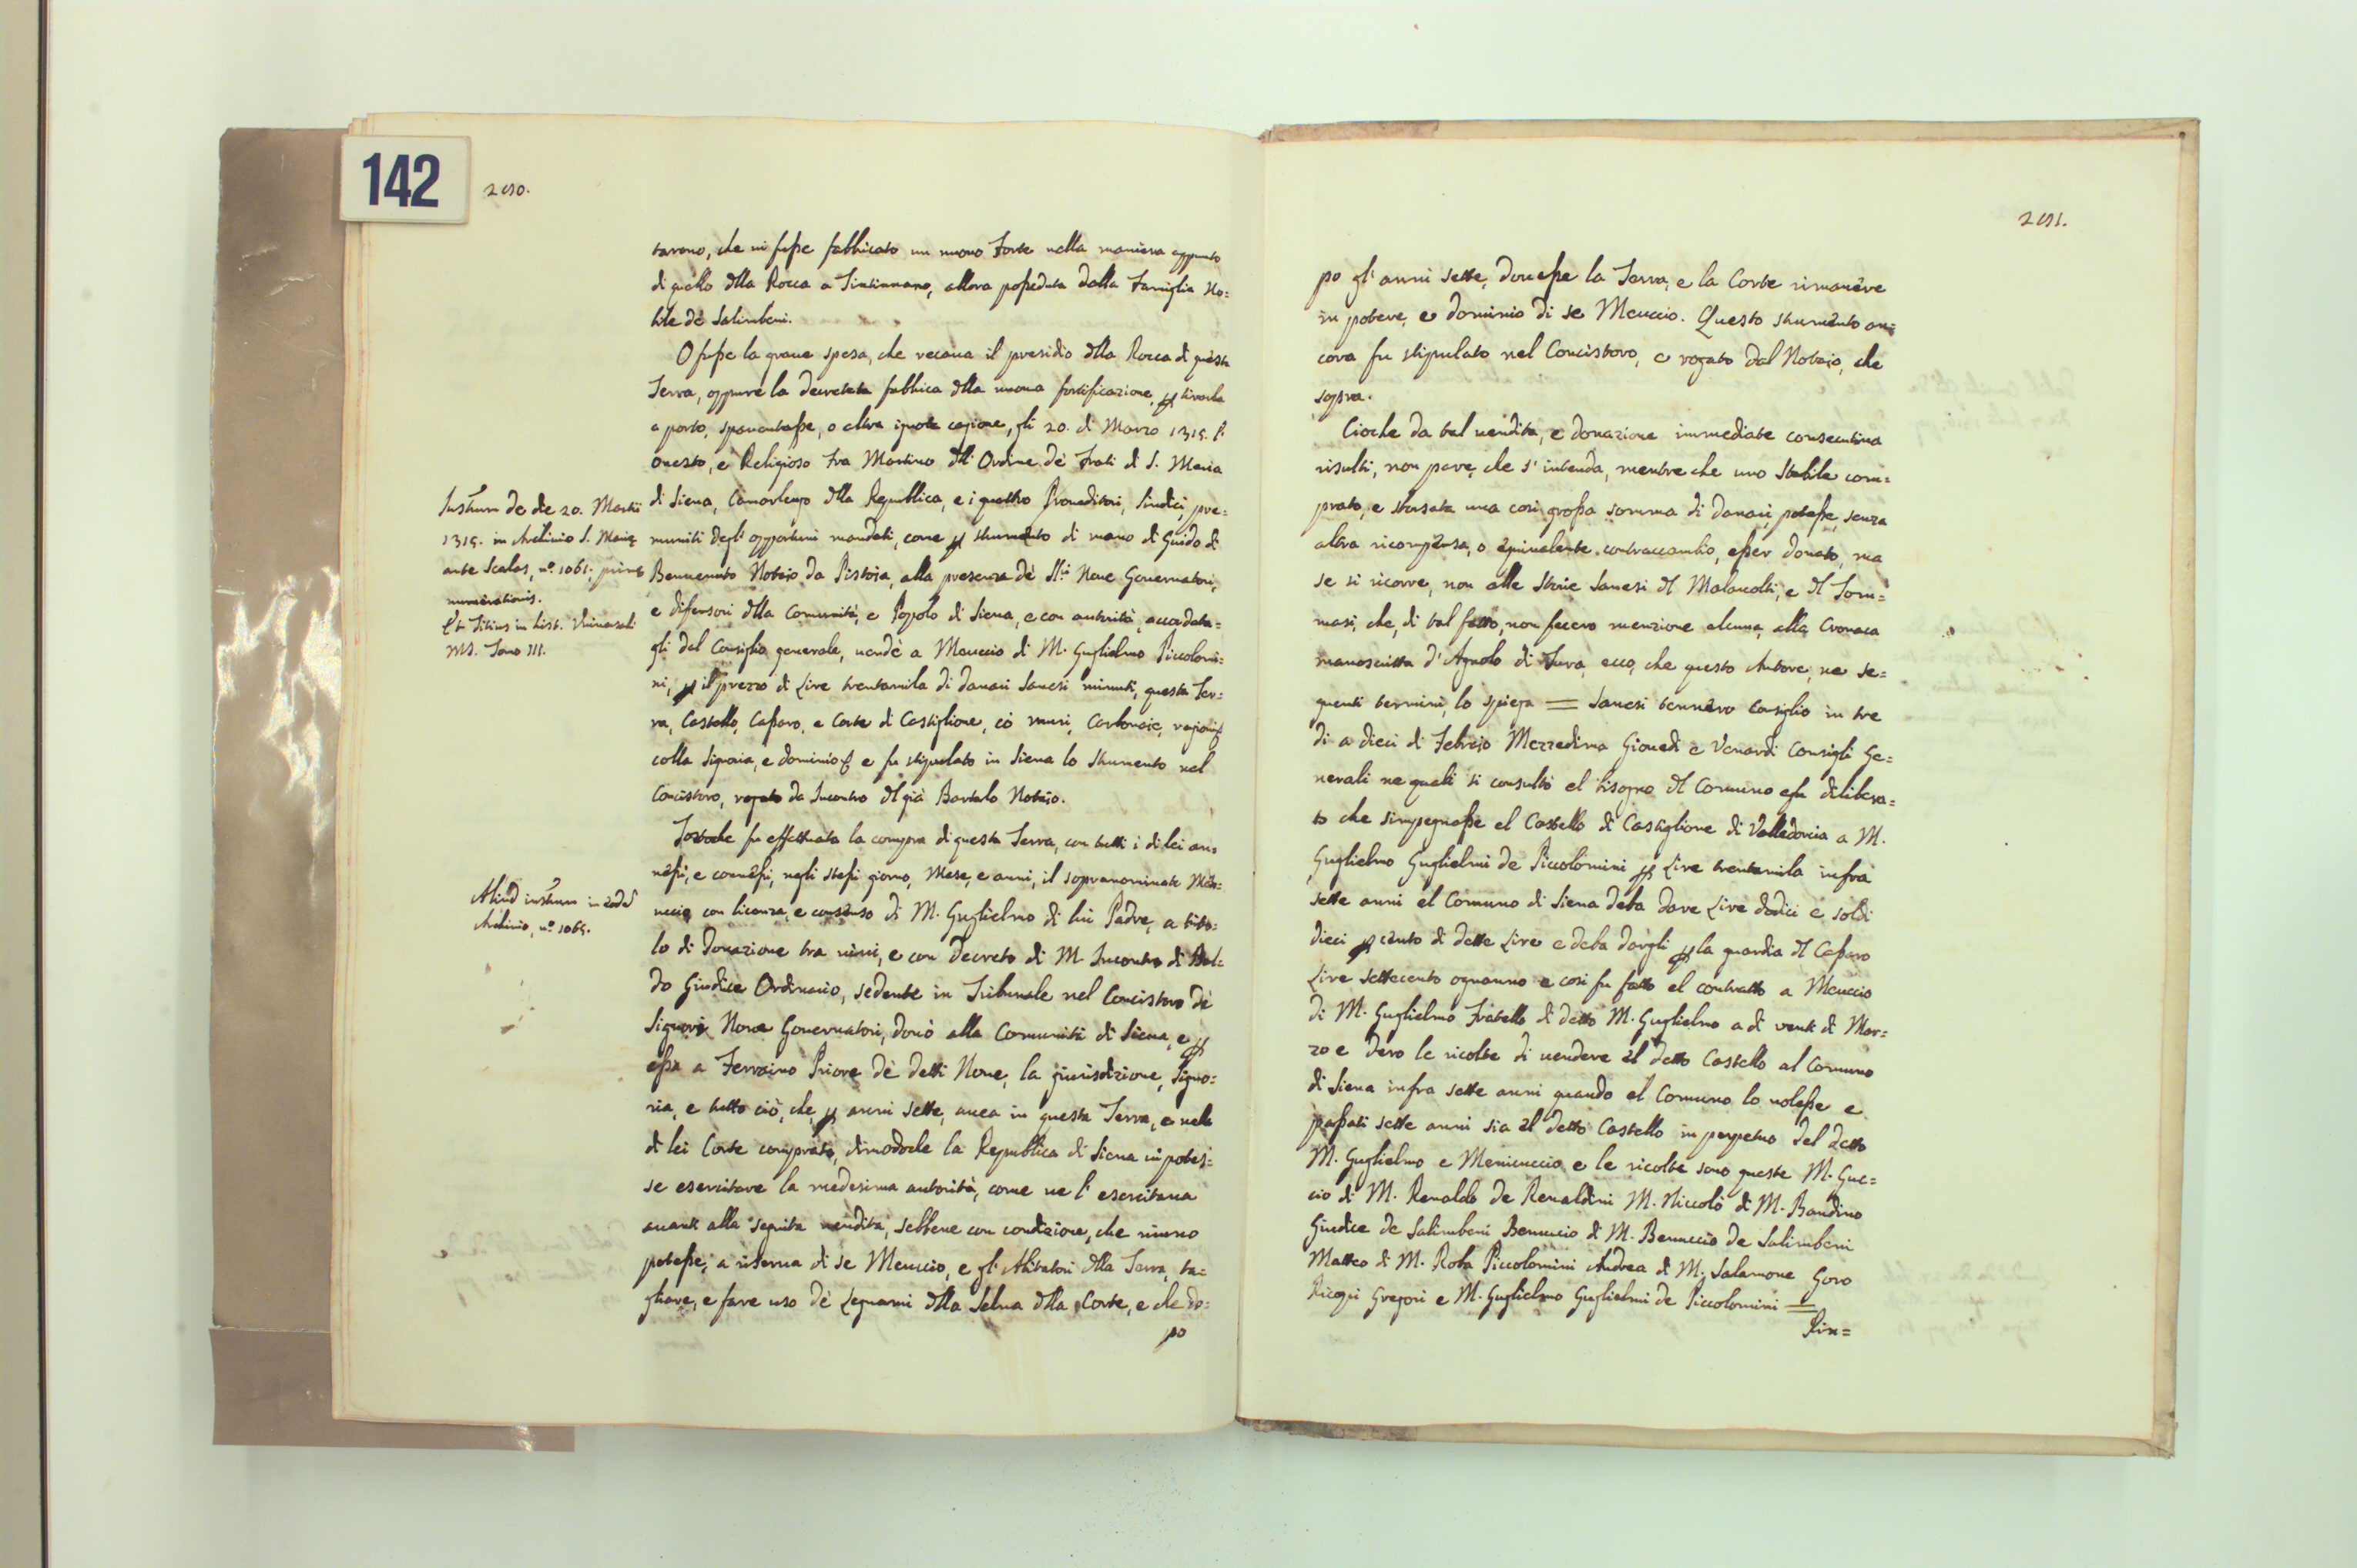 142
290.
tarono, che vi fusse fabbricato un nuono Forte nella maniera appunto
di quello dlla Rocca a Tintinnano, allora posseduta dalla Famiglia No=
bile de Salimbeni.
O fusse la graue spesa, che recaua il presidio dlla Rocca di questa
Terra, oppure la decretata fabbrica dlla nuoua fortificazione, p tirarla
a porto, spauentasse, o altra ignota cagione, gli 20. di Marzo 1315. l'
onesto, e Religioso Fra Martino dll' Ordine de Frati di S. Maria
di Siena, Camarlengo dlla Republica, e i quattro Proueditori, Sindici, pre=
muniti degl' opportuni mandati, come p strumento di mano di Guido di
Benuenuto Notaio da Pistoia, alla presenza de SS.ri Noue Gouernatori,
e difensori dlla Comunità, e Popolo di Siena, e con autorità, accordata=
gli dal Consiglio generale, uendè a Meuccio di M. Guglielmo Piccolomi=
ni, p il prezzo di Lire trentamila di danari Sanesi minuti, questa Ter=
ra, Castello, Cassaro, e Corte di Castiglione, cò muri, Carbonaie, ragioni
colla Signoria, e dominio & e fu stipulato in Siena lo Strumento nel
Concistoro, rogato da Incontro dl già Bartalo Notaio.
Tostoche fu effettuata la compra di questa Terra, con tutti i di lei an=
nessi, e connessi, negli stessi giorno, Mese, e anni, il sopranominato Me=
uccio, con licenza, e consenso di M. Guglielmo di lui Padre, a tito=
lo di donazione tra uiui, e con decreto di M. Incontro di Bal=
do Giudice Ordinario, sedente in Tribunale nel Concistoro de
Signori Noue Gouernatori, donò alla Comunità di Siena, e p
essa a Ferraino Priore de detti Noue, la giurisdizione, Signo=
ria, e tutto ciò, che, p anni sette, auea in questa Terra, e nella
di lei Corte comprato, dimodoche la Republica di Siena ui potes=
se esercitare la medesima autorità, come ue l' esercitaua
auanti alla seguita uendita, sebbene con condizione, che niuno
potesse, a riserua di se Meuccio, e gl' Abitatori dlla Terra, ta=
gliare, e fare uso de Legnami dlla Selua dlla Corte, e che do=
po
Instrum de die 20. Martii
1315. in Archiuio S. Mariæ
ante Scalas, n.o 1061. prime
numerationis.
Et Titius in hist. Vniuersali
MS. Tomo III.
Aliud instrum in eodem
Archiuio, n.o 1065.
291.
po gl' anni sette, douesse la Terra, e la Corte rimanere
in potere, e dominio di se Meuccio. Questo strumento an=
cora fu stipulato nel Concistoro, e rogato dal Notaio, che
sopra.
Cioche da tal uendita, e donazione immediate consecutiua
risulti, non pare, che s' intenda, mentre che uno Stabile com=
prato, e sborsata una così grossa somma di danari, potesse, senza
altra ricompensa, o equiualente contraccambio, esser donato, ma
se si ricorre, non alle Storie Sanesi dl Malauolti, e dl Tom=
masi, che, di tal fatto, non fecero menzione alcuna, alla Cronaca
manoscritta d' Agnolo di Tura, ecco, che questo Autore, ne se=
guenti termini, lo spiega = Sanesi tennero Consiglio in tre
di a dieci di Febraio Mezzedima Giouedi e Venardi Consigli Ge=
nerali ne quali si consultò el bisogno dl Comuno e fu dilibera=
to che simpegnasse el Castello di Castiglione di Valledorcia a M.
Guglielmo Guglielmi de Piccolomini p Lire trentamila infra
sette anni el Comuno di Siena deba dare Lire dodici e soldi
dieci p cento di dette Lire e deba dargli p la guardia dl Cassaro
Lire settecento ognanno e così fu fatto el contratto a Meuccio
di M. Guglielmo Fratello di detto M. Guglielmo a di uenti di Mar=
zo e dero le ricolte di uendere el detto Castello al Comuno
di Siena infra sette anni quando el Comuno lo uolesse e
passati sette anni sia el detto Castello in perpetuo del detto
M. Guglielmo e Menicuccio e le ricolte sono queste M. Guc=
cio di M. Renaldo de Renaldini M. Niccolò di M. Bandino
Giudice de Salimbeni Benuccio di M. Benuccio de Salimbeni
Matteo di M. Roba Piccolomini Andrea di M. Salamone Goro
Ricopri Gregori e M. Guglielmo Guglielmi de Piccolomini =
Rin=